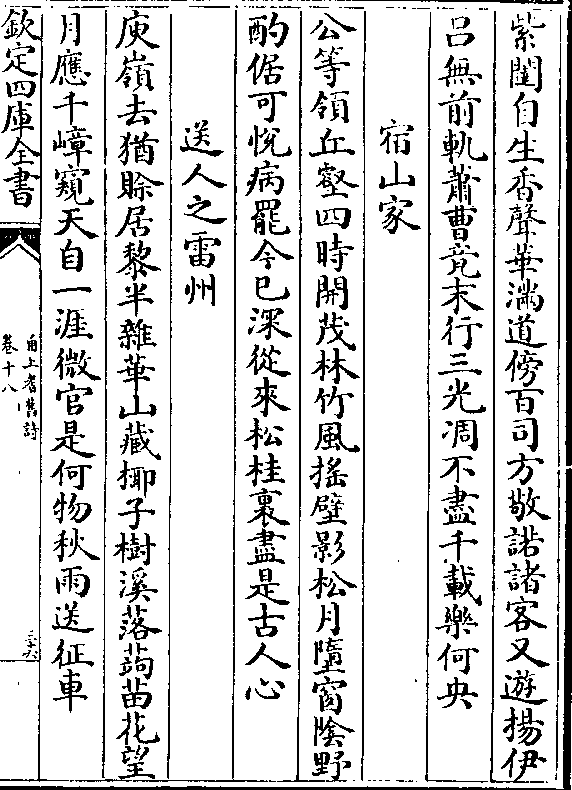 紫闥自生香聲華滿道傍百司方敬諾諸客又遊揚伊
呂無前軌蕭曹竟末行三光凋不盡千載樂何央
宿山家
公等領丘壑四時開茂林竹風搖壁影松月墮窗陰野
酌倨可悅病罷今已深從來松桂裏盡是古人心
送人之雷州
庾嶺去猶賒居黎半雜華山藏揶子樹溪落蒟苗花望
月應千嶂窺天自一涯微官是何物秋雨送征車
欽定四庫全書
甬上耆舊詩
卷十八
三十六